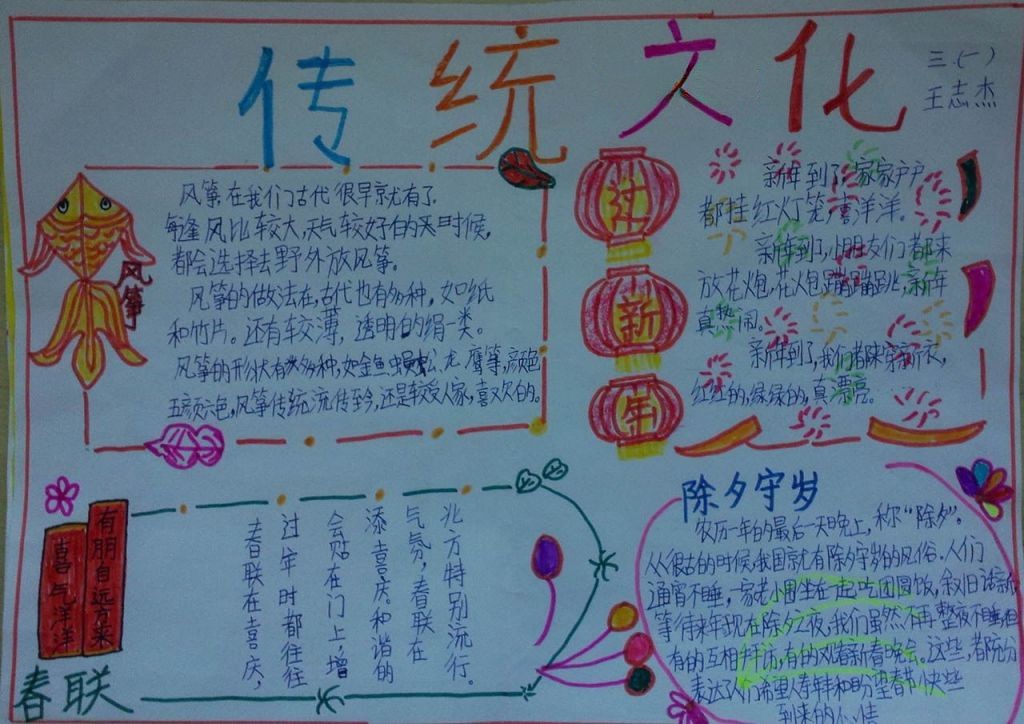 传统文化
三(一)
王志杰
风筝
风筝在我们古代很早就有了。
每逢风比较大,天气较好的时候,
都会选择去野外放风筝。
风筝的做法在古代也有多种,如纸
和竹片。还有较薄,透明的绢一类。
风筝的形状有多种,如金鱼、蜈蚣、龙、鹰等,颜色
五颜六色,风筝传统流传至今,还是较受人家,喜欢的。
过
新
年
新年到了,家家户户
都挂红灯笼,喜洋洋。
新年到了,小朋友们都来
放花炮,花炮蹦蹦跳,新年
真热闹。
新年到了,我们都来穿新衣,
红红的,绿绿的,真漂亮。
有朋自远方来
喜气洋洋
春联
北方特别流行。
气氛,春联在
添喜庆。和谐的
会贴在门上,增
过年时都往往
春联在喜庆,
除夕守岁
农历一年的最后一天晚上,称“除夕”。
从很古的时候,我国就有除夕守岁的风俗。人们
通宵不睡,一家老小围坐在一起吃团圆饭,叙旧话新,
等待来年,现在除夕之夜,我们虽然不再整夜不睡,但
有的互相拜访,有的观看新春晚会。这些,都充分
表达人们希望人寿年和盼望春节快些
到来的心情